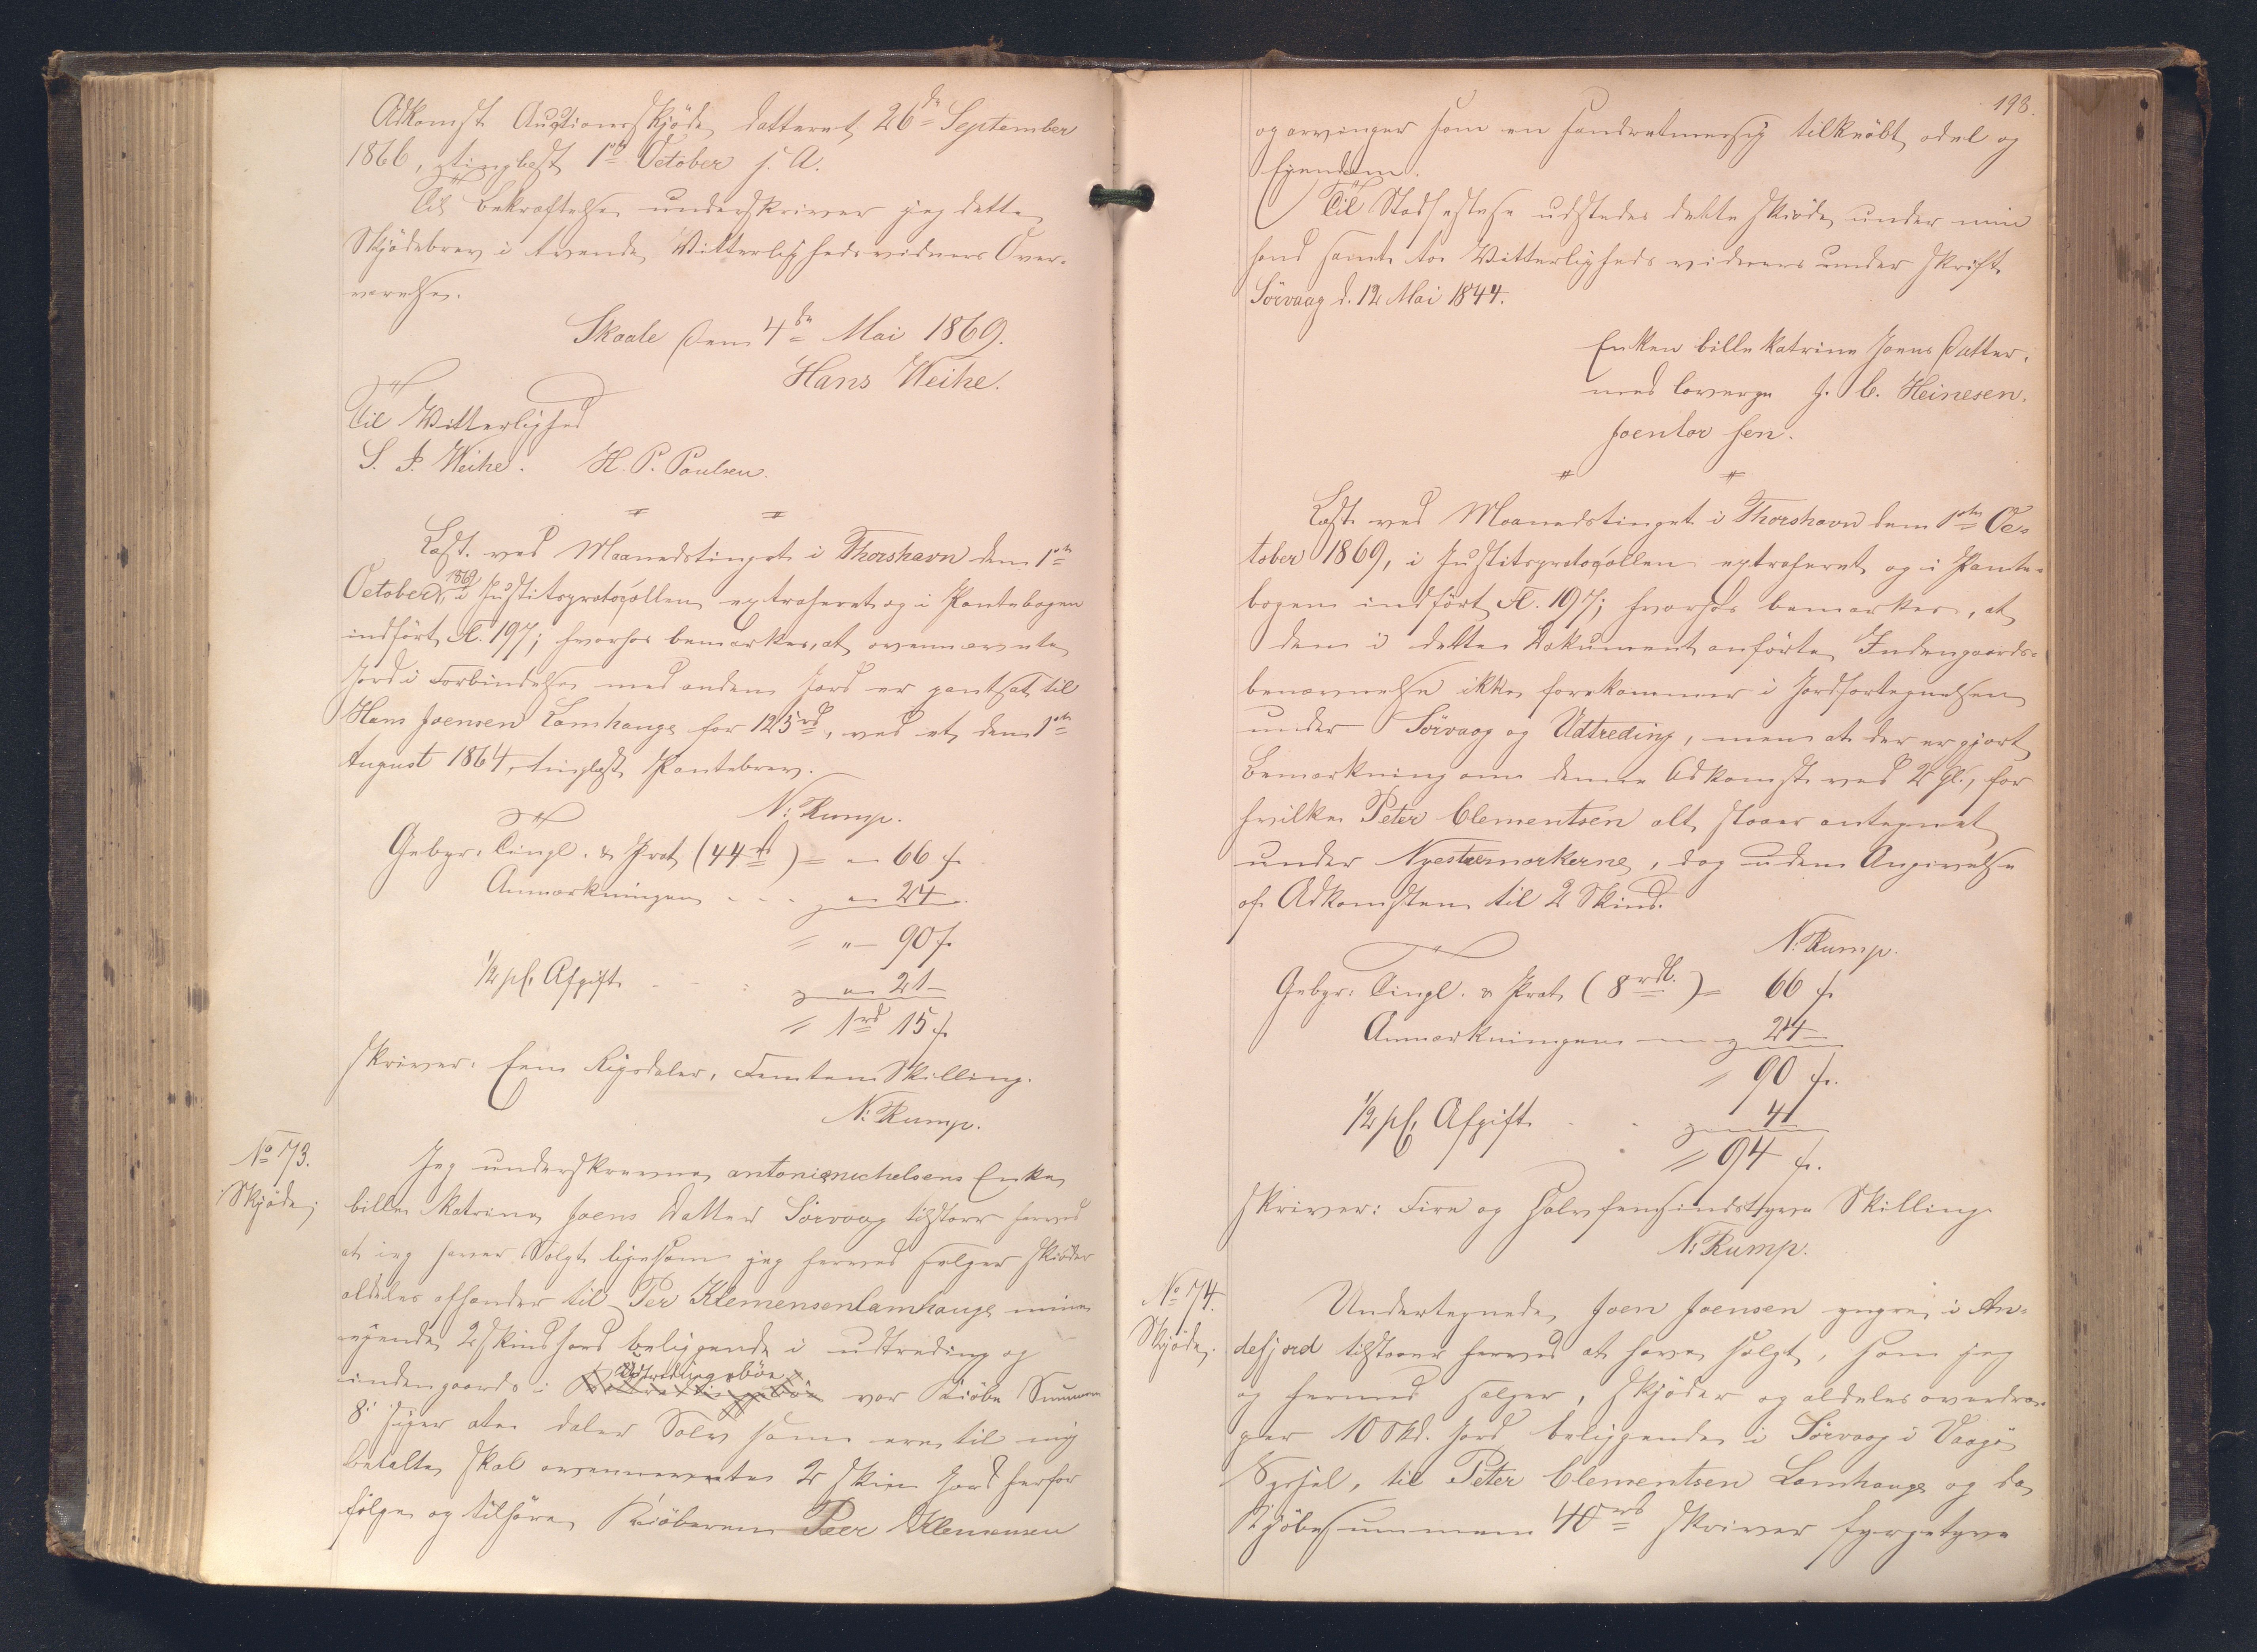 Adkomst Auctionsskjöde datteret 26de September
1866, tinglæst 1ste October s. A.
Til Bekræftelse underskriver jeg dette
Skjödebrev i tvende Vitterlighedsvidners Over-
værelse.
Skaale den 4de Mai 1869.
Hans Weihe.
Til Vitterlighed
S. P. Weihe. H. P. Poulsen.
Læst ved Maanedstinget i Thorshavn den 1ste
October 1869, i Justitsprotocollen extraheret og i Pantebogen
indfört Fl. 197; hvorhos bemærkes, at ovennævnte
Jord i Forbindelse med anden Jord er pantsat til
Hans Joensen Lamhauge for 125rd, ved et den 1ste
August 1864, tinglæst Pantebrev.
N: Rump.
Gebyr: Tingl. & Prot (44rd) = " 66 s.
Anmærkningen - - - " 24
= " - 90 s.
1/2 pC. Afgift - - : " 21 -
= 1rd 15 s.
skriver: Een Rigsdaler, Femten Skilling.
N: Rump.
No 173.
Skjöde.
Jeg underskrevne antonimichelsens Enke
bille Katrine Joens Datter Sörvaag tilstaar herved
at jeg haver Solgt ligesom jeg herved selger skiöder
aldeles afhænder til Per Klemensen lamhauge min
egende 2 skind jord beliggende i udtreding og
indengaards i Udtredingsböe vor Kiöbe Summen
8 siger ate daler Sölv som ere til mig
betalte skal ovennevnte 2 skin jord herfor
fölge og tilhöre Kiöberen Peer Klemensen
193.
og arvinger som en handretmessig tilkiöbt odel og
Eyendom.
Til Stadfestese udstedes dette skiöde under min
hand samt to Vitterligheds vidners under skrift
Sörvaag d. 12 Mai 1844.
Enken bille Katrine Joens Datter.
med laverge J. C. Heinesen.
Læst ved Maanedstinget i Thorshavn den 1ste Oc-
tober 1869, i Justitsprotocollen extraheret og i Pante-
bogen indfört Fl. 197; hvorhos bemærkes, at
den i dette Dokument anförte Indengaards-
benævnelse ikke forekommer i Jordfortegnelsen
under Sörvaag og Udtreding, men at der er gjort
Bemærkning om denne Adkomst ved 2 Gl., for
hvilke Peter Clementsen alt staaer antegnet
under Nyestuemörkerne, dog uden Angivelse
af Adkomsten til 2 Skind.
N: Rump.
Gebyr: Tingl. & Prot (8rdl.) = 66 s.
Anmærkningen - - 24 -
= 90 s.
1/2 pC. Afgift - - 4
= 94 s.
skriver: Fire og Halvfemsindstyve Skilling
N: Rump.
No 174.
Skjöde.
Undertegnede Joen Joensen yngre i An-
defjord tilstaaer herved at have solgt, som jeg
og hermed sælger, skjöder og aldeles overdra-
ger 10 Skd. Jord beliggende i Sörvaag i Vaagö
Syssel, til Peter Clementsen Lamhauge og da
Kjöbesummen 40rd skriver fyrgetyve